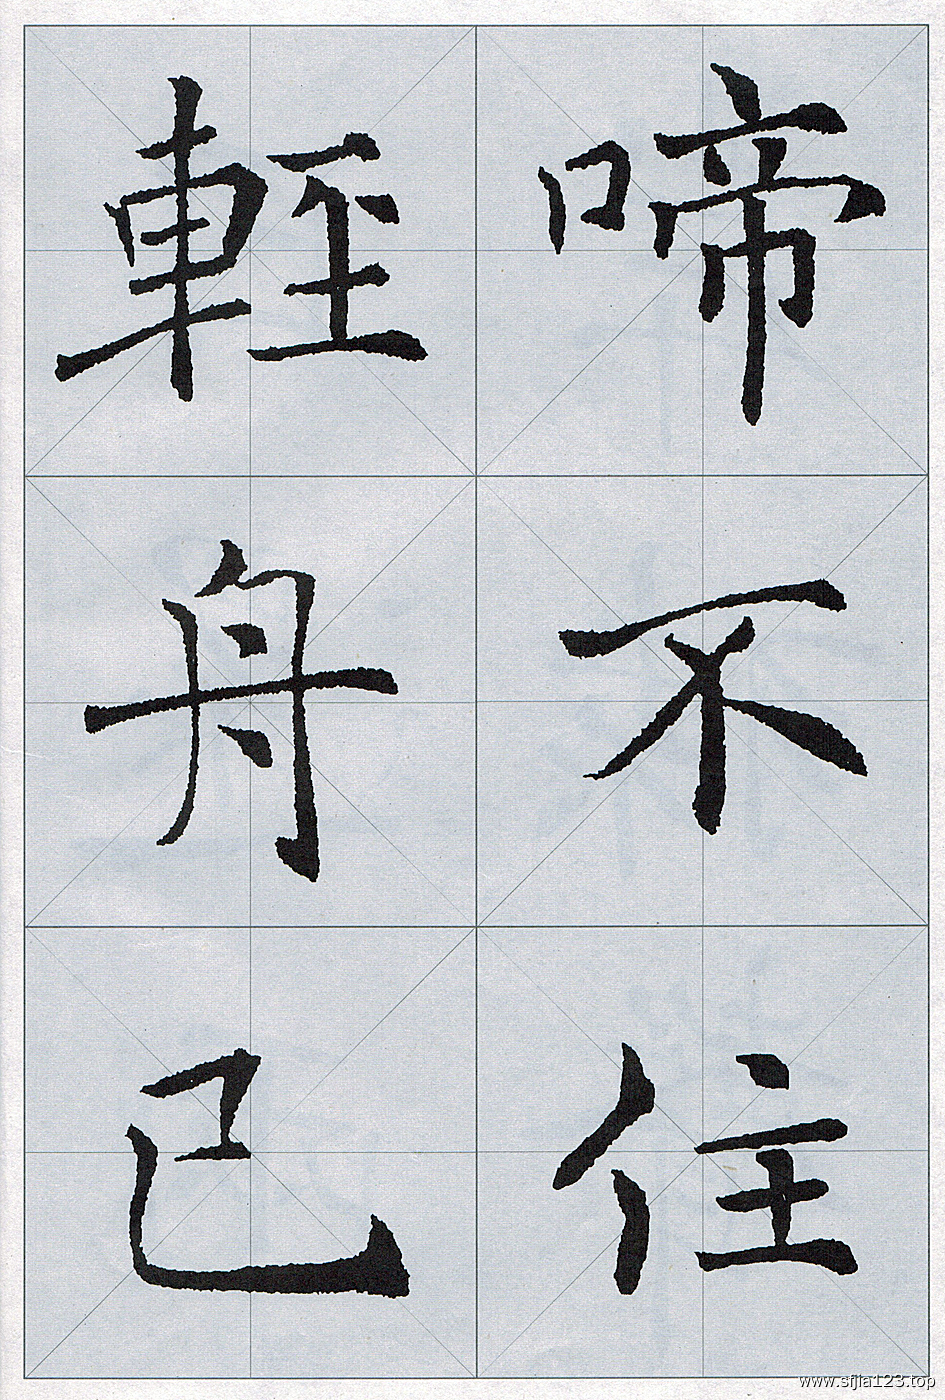 啼不住
輕舟已
www.sijia123.top